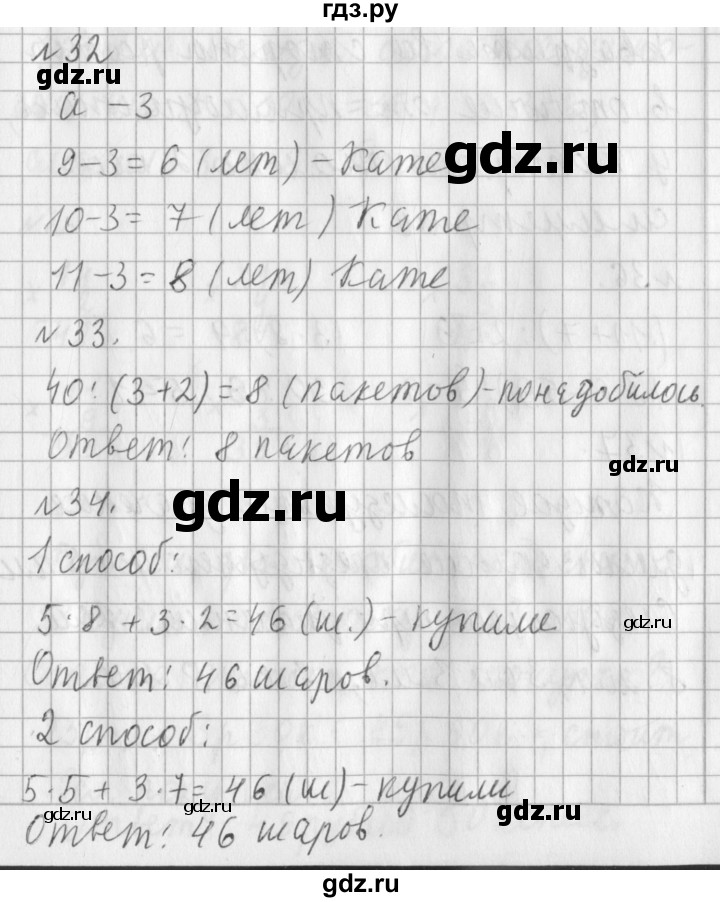 гдз.ру
№32
gdz.ru
а - 3
9-3=6 (лет) - Кате
gdz.ru
10-3= 7 (лет) Кате
11-3=8 (лет) Кате
№33.
40:(3+2)=8 (пакетов)-понадобилось.
Ответ: 8 пакетов
gdz.ru
№34.
gdz.ru
1 способ:
5·8 + 3·2=46 (ш.) - купили
gdz.ru
Ответ: 46 шаров.
2 способ:
5·5 + 3·7= 46 (ш) - купили
gdz.ru
gdz.ru
Ответ: 46 шаров.
gdz.ru